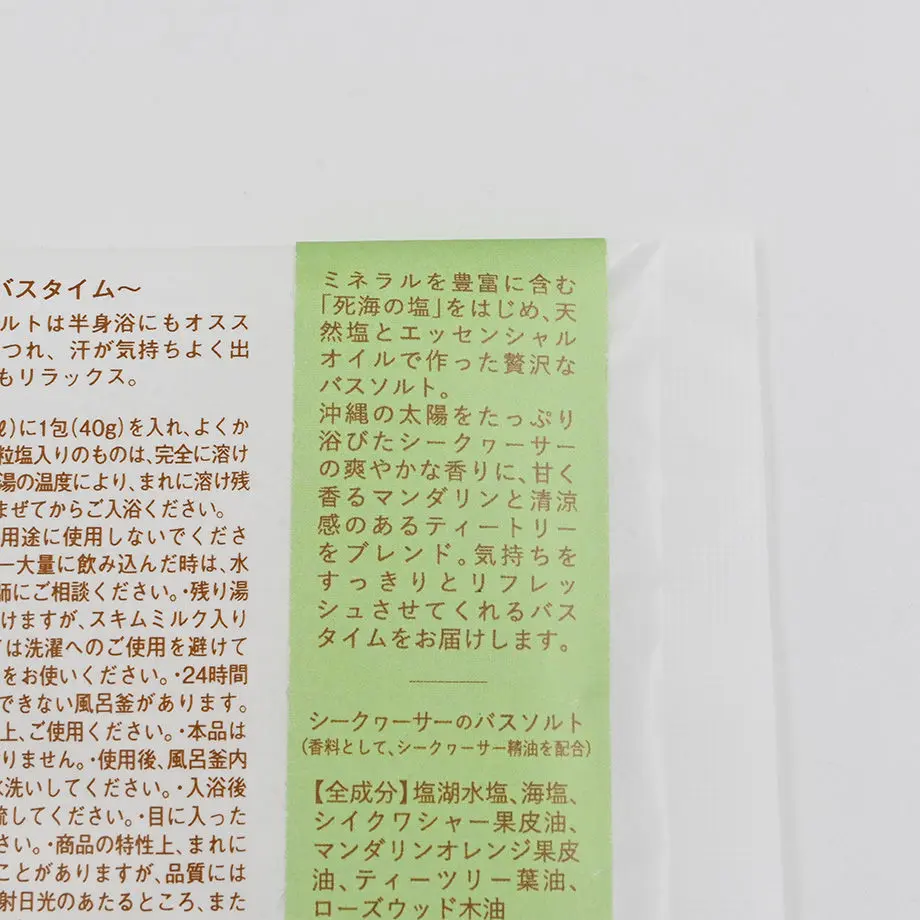 バスタイム〜
ルトは半身浴にもオスス
つれ、汗が気持ちよく出
もリラックス。
ℓ)に1包(40g)を入れ、よくか
粒塩入りのものは、完全に溶け
湯の温度により、まれに溶け残
まぜてからご入浴ください。
用途に使用しないでくださ
一大量に飲み込んだ時は、水
師にご相談ください。・残り湯
けますが、スキムミルク入り
ては洗濯へのご使用を避けて
をお使いください。・24時間
できない風呂釜があります。
上、ご使用ください。・本品は
りません。・使用後、風呂釜内
水洗いしてください。・入浴後
流してください。・目に入った
さい。・商品の特性上、まれに
ことがありますが、品質には
射日光のあたるところ、また
ミネラルを豊富に含む
「死海の塩」をはじめ、天
然塩とエッセンシャル
オイルで作った贅沢な
バスソルト。
沖縄の太陽をたっぷり
浴びたシークヮーサー
の爽やかな香りに、甘く
香るマンダリンと清涼
感のあるティートリー
をブレンド。気持ちを
すっきりとリフレッ
シュさせてくれるバス
タイムをお届けします。
シークヮーサーのバスソルト
(香料として、シークヮーサー精油を配合)
【全成分】塩湖水塩、海塩、
シイクワシャー果皮油、
マンダリンオレンジ果皮
油、ティーツリー葉油、
ローズウッド木油